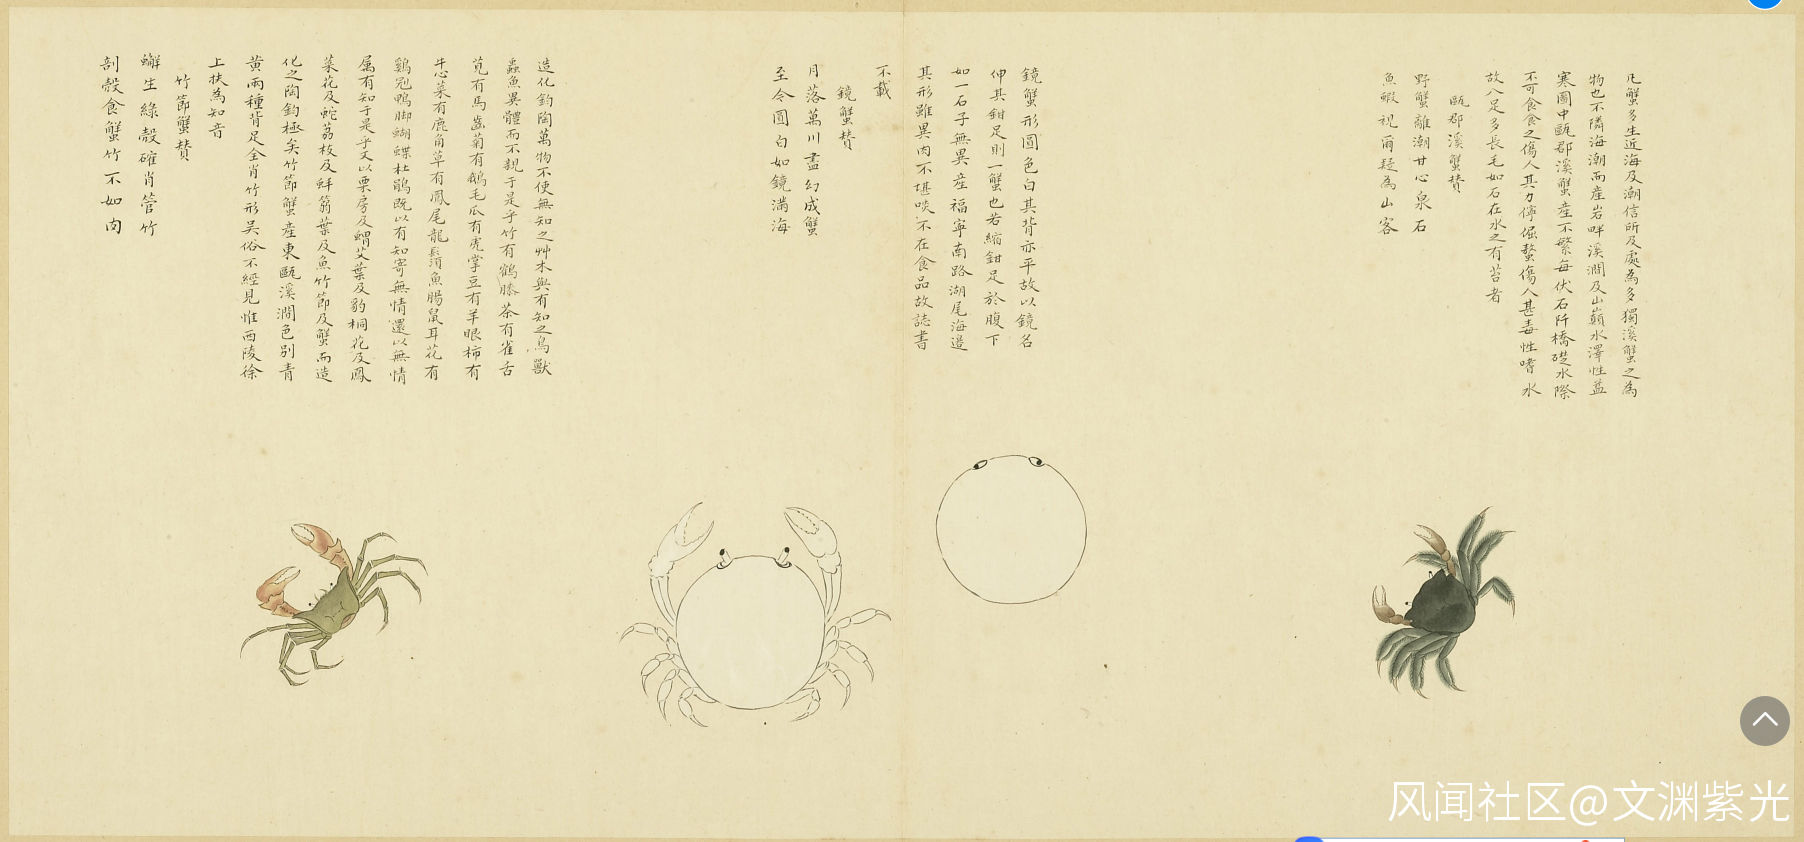 凡蟹多生近海及潮信所及處為多獨溪蟹之為
物也不隣海潮而産岩畔溪澗及山巔水澤性益
寒圖中甌郡溪蟹産不繁每伏石阡橋磴水際
不可食食之傷人其力儜倔螯傷人甚毒性嗜水
故八足多長毛如石在水之有苔者
甌郡溪蟹賛
野蟹離潮甘心泉石
魚蝦視爾疑為山客
鏡蟹形圓色白其背亦平故以鏡名
伸其鉗足則一蟹也若縮鉗足於腹下
如一石子無異産福寧南路湖尾海邉
其形雖異肉不堪啖不在食品故誌書
不載
鏡蟹賛
月落萬川盡幻成蟹
至今圓白如鏡滿海
造化鈞陶萬物不使無知之艸木與有知之鳥獸
蟲魚異體而不親于是乎竹有鶴膝茶有雀舌
莧有馬齒菊有鵝毛瓜有虎掌豆有羊眼柿有
牛心菜有鹿角草有鳳尾龍鬚魚腸鼠耳花有
鷄冠鴨脚蝴蝶杜鵑既以有知寄無情還以無情
属有知于是乎又以栗房及蝟艾葉及豹桐花及鳳
菜花及蛇荔枝及蚌蒻葉及魚竹節及蟹而造
化之陶鈞極矣竹節蟹產東甌溪澗色别青
黄兩種背足全肖竹形吴俗不經見惟西陵徐
上扶為知音
竹節蟹賛
蠏生綠殼確肖管竹
剖殼食蟹竹不如肉
风闻社区@文渊紫光